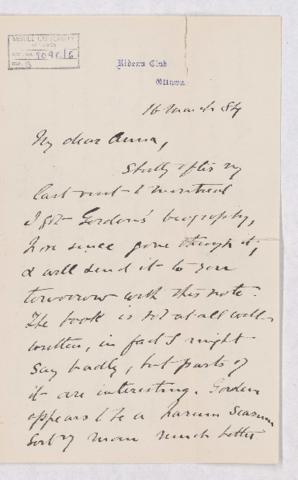 McGILL UNIVERSITY
Rideau Club
Ottawa
16 March 84
My dear Anna,
Shortly after my
last visit to Montreal
I got Gordon's biography,
have since gone through it,
& will send it to you
tomorrow with this note.
The book is not at all well
written, in fact I might
say badly, but parts of
it are interesting. Gordon
appears to be a harum scarum
sort of man much better